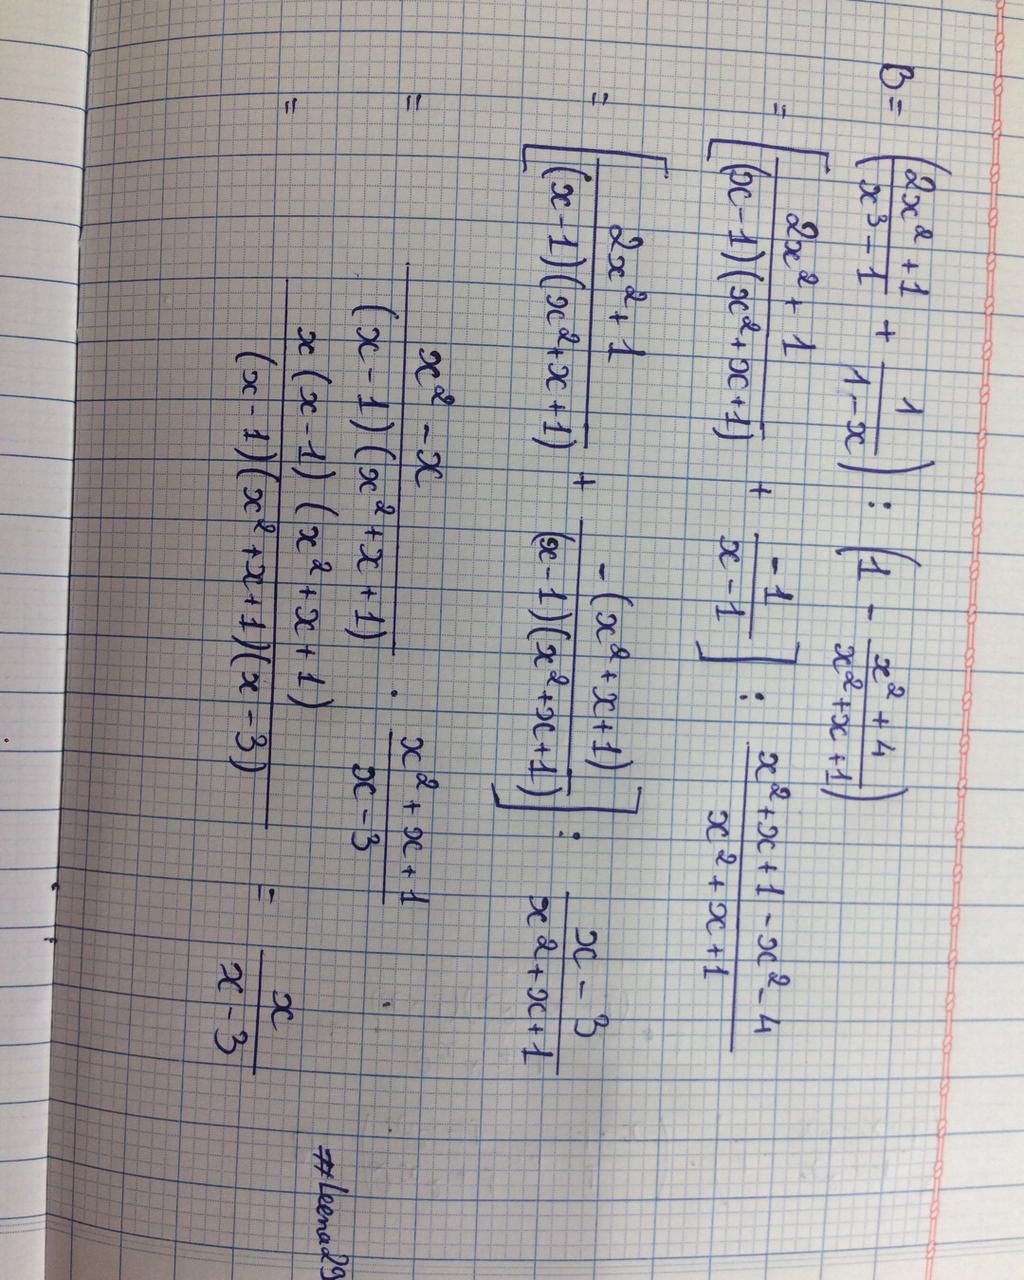 B = (2x²+1 / x³-1 + 1 / 1-x) : (1 - x²+4 / x²+x+1)
= [2x²+1 / (x-1)(x²+x+1) + -1 / x-1] : x²+x+1-x²-4 / x²+x+1
= [2x²+1 / (x-1)(x²+x+1) + -(x²+x+1) / (x-1)(x²+x+1)] : x-3 / x²+x+1
= x²-x / (x-1)(x²+x+1) . x²+x+1 / x-3
= x(x-1)(x²+x+1) / (x-1)(x²+x+1)(x-3) = x / x-3
#leena29